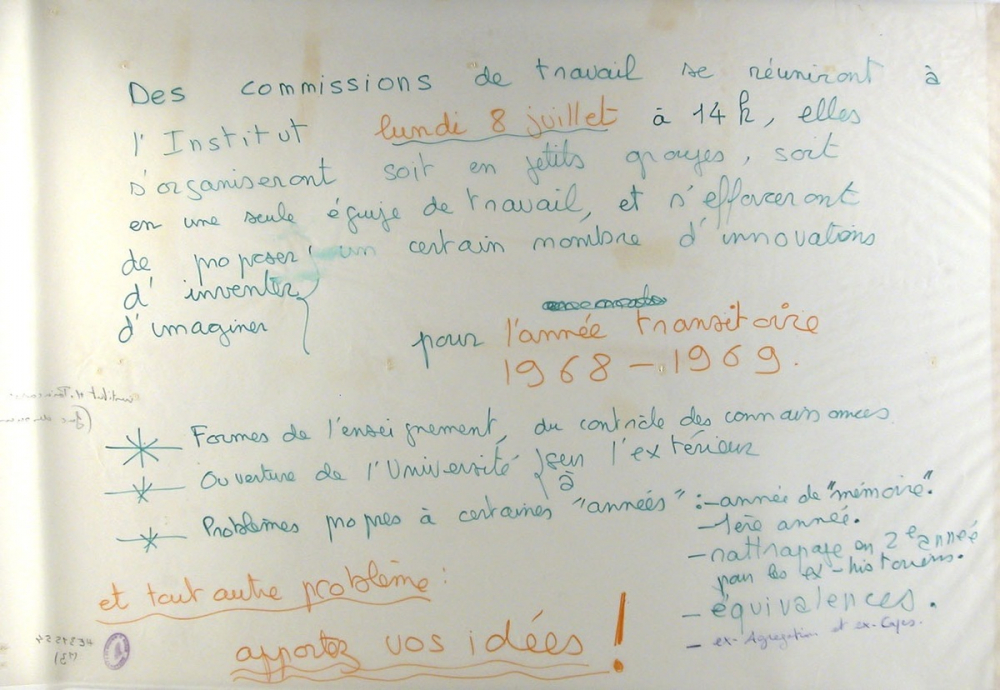 Des commissions de travail se réuniront à
l'Institut lundi 8 juillet à 14h, elles
s'organiseront soit en petits groupes, soit
en une seule équipe de travail, et s'efforceront
de proposer un certain nombre d'innovations
d'inventer
d'imaginer
pour l'année transitoire
1968 - 1969.
Formes de l'enseignement, du contrôle des connaissances
Ouverture de l'Université sur l'extérieur
à
Problèmes propres à certaines "années" : - année de "mémoire".
- 1ère année.
- rattrapage en 2e année
pour les ex-historiens.
- équivalences.
- ex-Agrégation et ex-Capes.
et tout autre problème :
apportez vos idées !